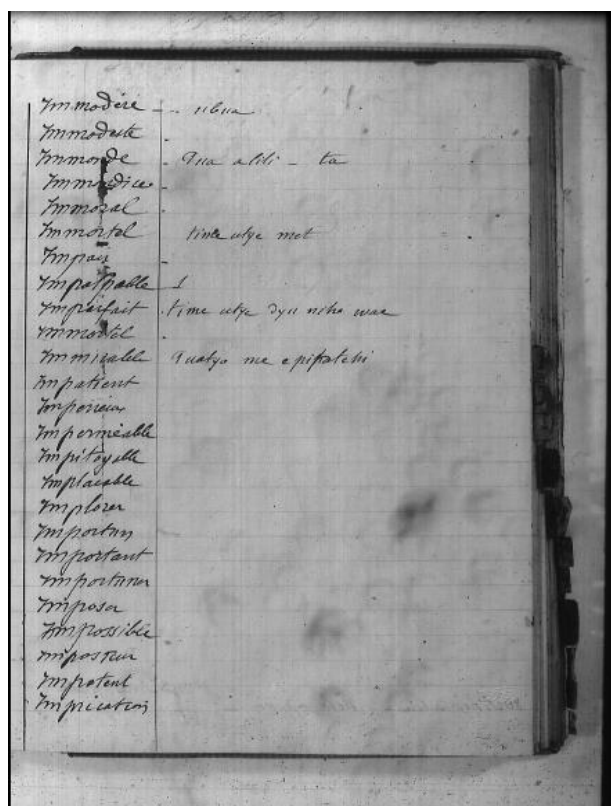 Immodéré - . ubua
Immodeste -
Immonde - Qua alili - ta
Immondice -
Immoral
Immortel time utye met
Impair -
Impalpable 1
Imparfait . time utye
Immortel .
Immuable me epifatchi
Impatient
Impérieux
Imperméable
Impitoyable
Implacable
Implorer
Importun
Important
Importuner
Imposer
Impossible
Imposteur
Impotent